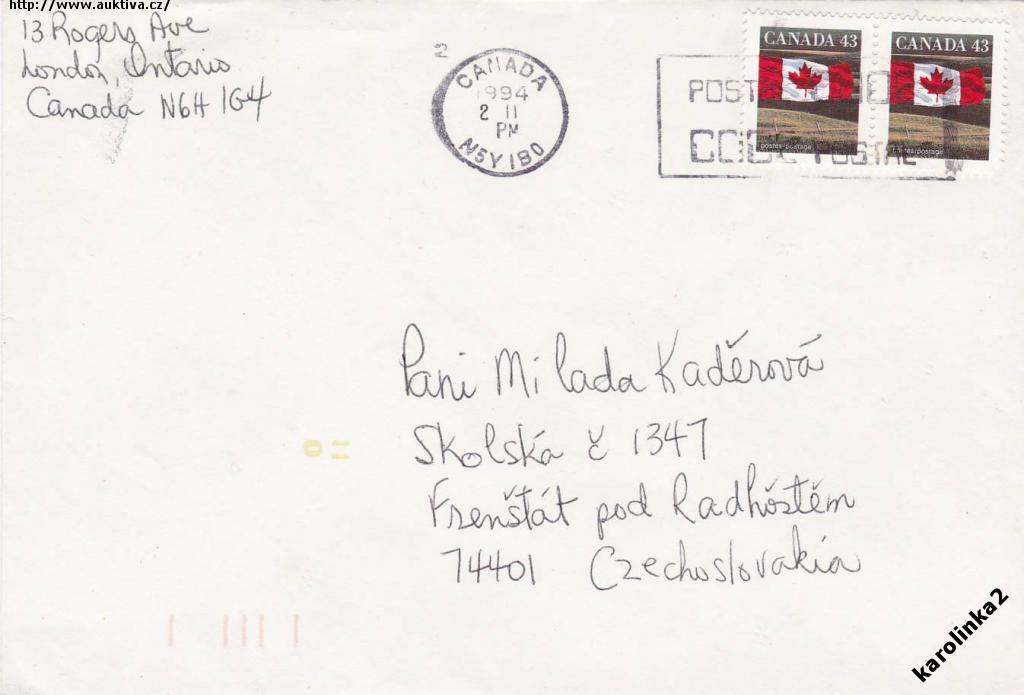 http://www.auktiva.cz/
13 Rogers Ave
London, Ontario
Canada N6H 1G4
2
CANADA
1994
2 11
PM
N5Y1B0
POST
POSTAL
CANADA 43
postes/postage
CANADA 43
Pani Milada Kaděrová
Skolská č 1347
Frenštát pod Radhóštěm
74401 Czechoslovakia
karolinka2